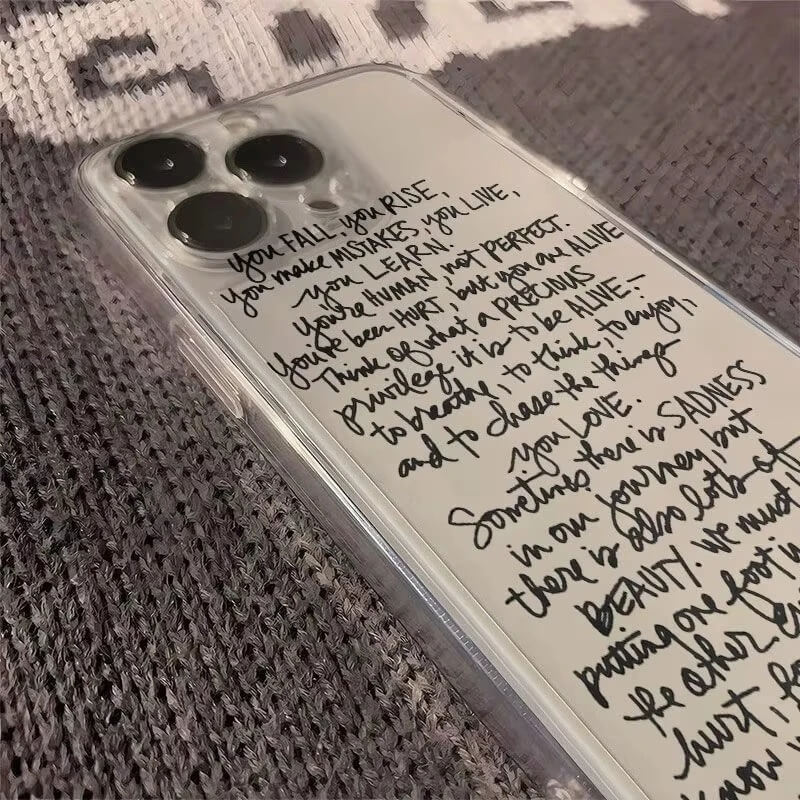 you FALL you RISE,
you make MISTAKES, you LIVE,
you LEARN.
you're HUMAN, not PERFECT.
You've been HURT, but you are ALIVE
Think of what a PRECIOUS
privilege it is to be ALIVE -
to breathe, to think, to enjoy,
and to chase the things
you LOVE.
Sometimes there is SADNESS
in our journey, but
there is also lots of
BEAUTY. We must
putting one foot
the other
hurt,
know